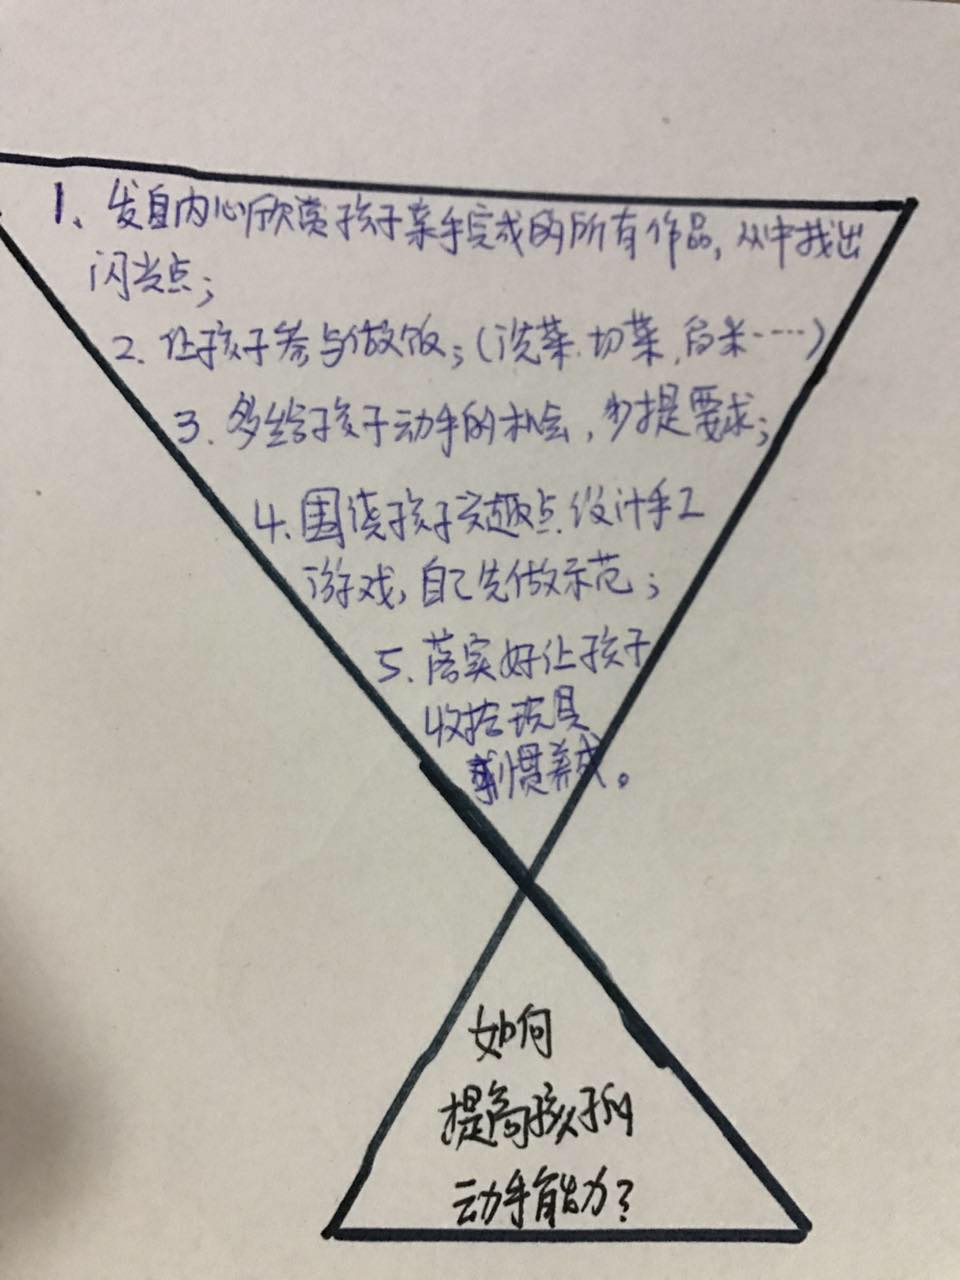 1、发自内心欣赏孩子亲手完成的所有作品,从中找出
闪光点;
2. 让孩子参与做饭;(洗菜、切菜、舀米……)
3. 多给孩子动手的机会,少提要求;
4. 围绕孩子兴趣点设计手工
游戏,自己先做示范;
5. 落实好让孩子
收拾玩具
习惯养成。
如何
提高孩子的
动手能力?